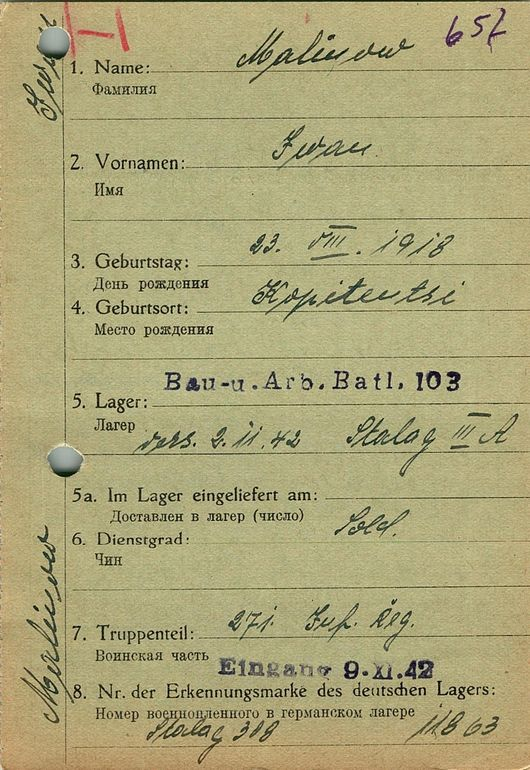 657
1. Name: Malinow
Фамилия
2. Vornamen: Iwan
Имя
3. Geburtstag: 23. VIII. 1918
День рождения
4. Geburtsort: Kopitentsi
Место рождения
Bau-u. Arb. Batl. 103
5. Lager:
Лагер
vers. 2.11.42 Stalag III A
5a. Im Lager eingeliefert am:
Доставлен в лагер (число)
6. Dienstgrad: Sold.
Чин
7. Truppenteil: 271. Inf. Reg.
Воинская часть
Eingang 9.XI.42
8. Nr. der Erkennungsmarke des deutschen Lagers:
Номер военнопленного в германском лагере
Stalag 308 11863
Malinow
Iwan